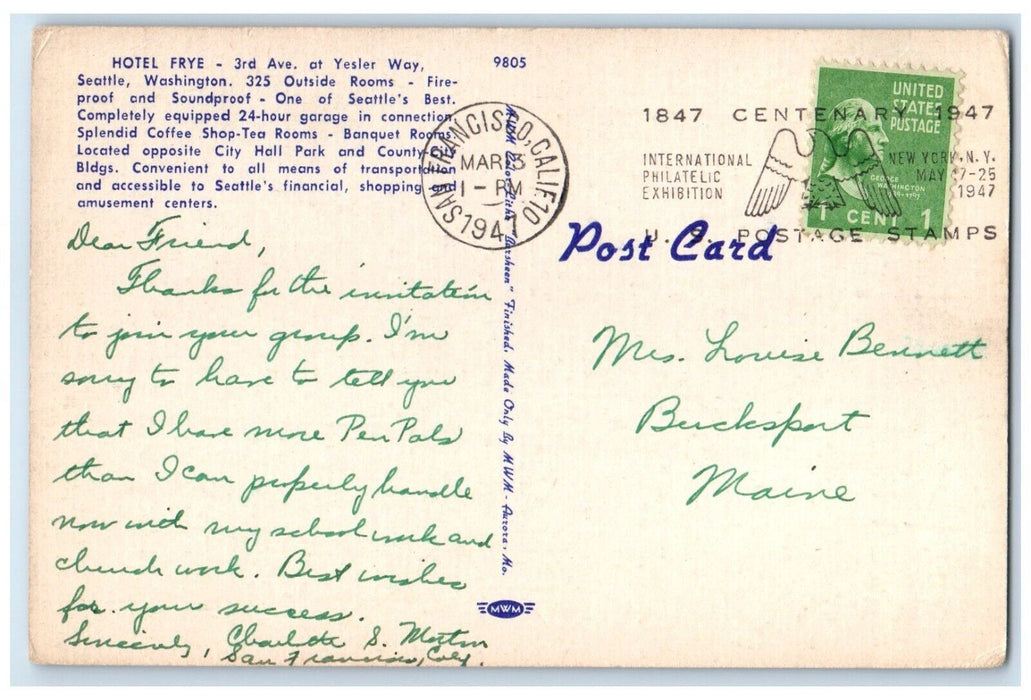 HOTEL FRYE - 3rd Ave. at Yesler Way,
Seattle, Washington. 325 Outside Rooms - Fire-
proof and Soundproof - One of Seattle's Best.
Completely equipped 24-hour garage in connection
Splendid Coffee Shop-Tea Rooms - Banquet Rooms
Located opposite City Hall Park and County-City
Bldgs. Convenient to all means of transportation
and accessible to Seattle's financial, shopping and
amusement centers.
9805
Dear Friend,
Thanks for the invitation
to join your group. I'm
sorry to have to tell you
that I have more Pen Pals
than I can properly handle
now with my school work and
church work. Best wishes
for your success.
Sincerely, Charlotte S. Morton
San Francisco, Calif.
MWM Color-Litho "Varsheen" Finished. Made Only By MWM - Aurora, Mo.
MWM
SAN FRANCISCO, CALIF. 10
MAR
1 - PM
1947
1847 CENTENARY 1947
INTERNATIONAL
PHILATELIC
EXHIBITION
NEW YORK, N.Y.
MAY 17-25
1947
U. S. POSTAGE STAMPS
UNITED
STATES
POSTAGE
GEORGE
WASHINGTON
1 CENT 1
Post Card
Mrs. Louise Bennett
Bucksport
Maine